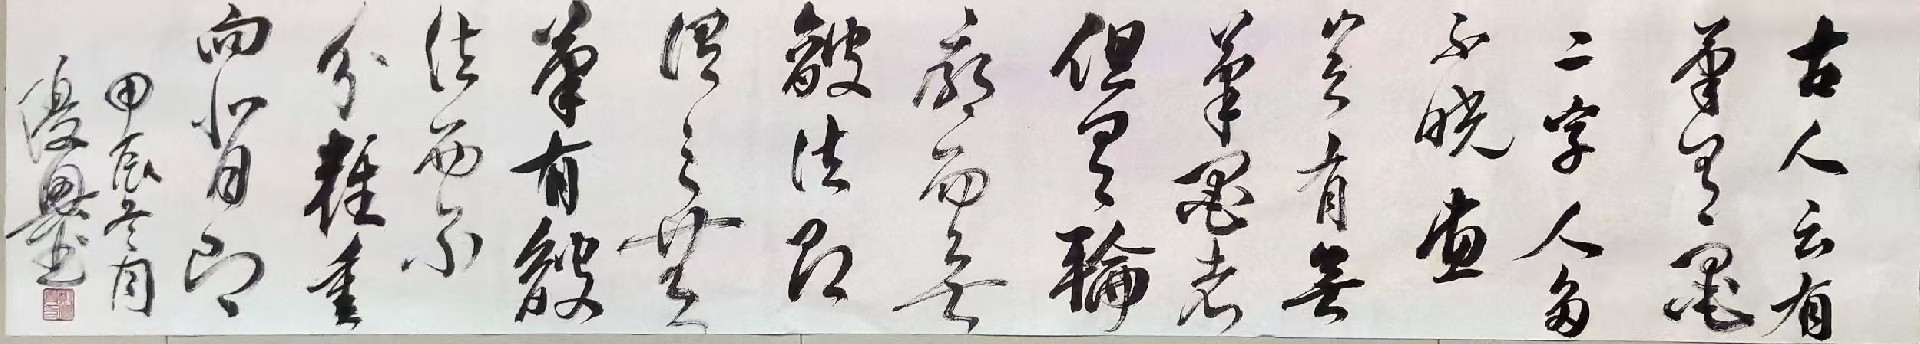 古人云有
筆有墨
二字人多
不晓畫
豈有無
筆墨者
但有輪
廓而無
皴法即
謂之無
筆有皴
法而不
分輕重
向背即
甲辰冬月